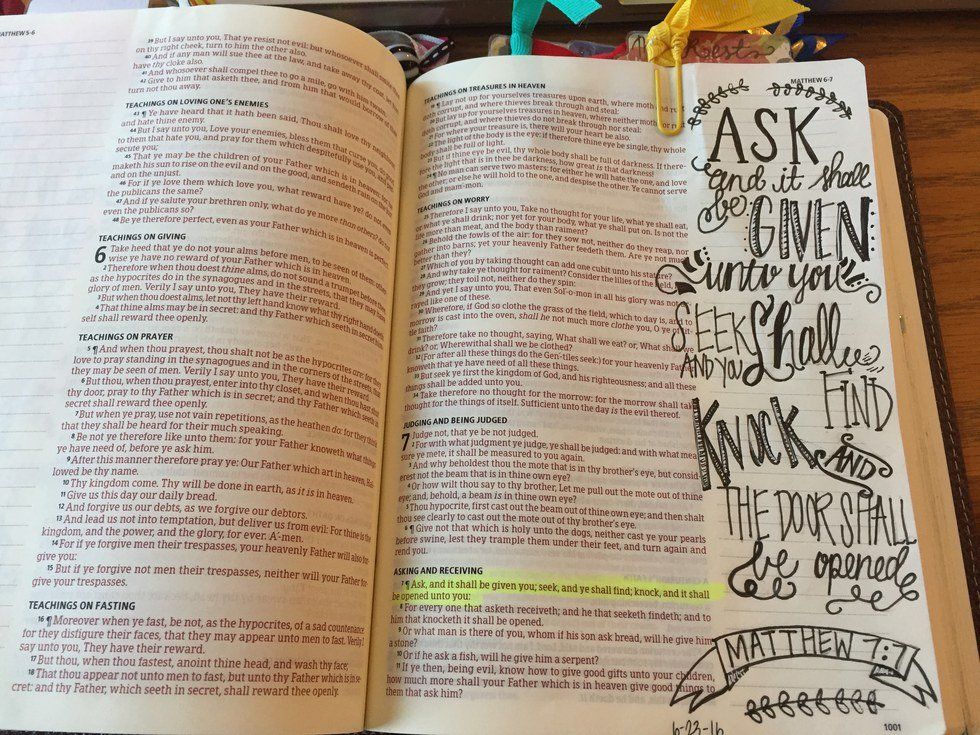 MATTHEW 5-6
39 But I say unto you, That ye resist not evil: but whosoever shall
on thy right cheek, turn to him the other also.
40 And if any man will sue thee at the law, and take away thy coat, let
have thy cloke also.
41 And whosoever shall compel thee to go a mile, go with him twain.
42 Give to him that asketh thee, and from him that would borrow of
turn not thou away.
TEACHINGS ON LOVING ONE'S ENEMIES
43 ¶ Ye have heard that it hath been said, Thou shalt love thy neighbour,
and hate thine enemy.
44 But I say unto you, Love your enemies, bless them that curse you, do good
to them that hate you, and pray for them which despitefully use you, and
secute you;
45 That ye may be the children of your Father which is in heaven: for he
maketh his sun to rise on the evil and on the good, and sendeth rain on the just
and on the unjust.
46 For if ye love them which love you, what reward have ye? do not even
the publicans the same?
47 And if ye salute your brethren only, what do ye more than others? do not
even the publicans so?
48 Be ye therefore perfect, even as your Father which is in heaven is perfect.
TEACHINGS ON GIVING
6 Take heed that ye do not your alms before men, to be seen of them: other-
wise ye have no reward of your Father which is in heaven.
2 Therefore when thou doest thine alms, do not sound a trumpet before thee,
as the hypocrites do in the synagogues and in the streets, that they may have
glory of men. Verily I say unto you, They have their reward.
3 But when thou doest alms, let not thy left hand know what thy right hand doeth:
4 That thine alms may be in secret: and thy Father which seeth in secret him-
self shall reward thee openly.
TEACHINGS ON PRAYER
5 ¶ And when thou prayest, thou shalt not be as the hypocrites are: for they
love to pray standing in the synagogues and in the corners of the streets, that
they may be seen of men. Verily I say unto you, They have their reward.
6 But thou, when thou prayest, enter into thy closet, and when thou hast shut
thy door, pray to thy Father which is in secret; and thy Father which seeth in
secret shall reward thee openly.
7 But when ye pray, use not vain repetitions, as the heathen do: for they think
that they shall be heard for their much speaking.
8 Be not ye therefore like unto them: for your Father knoweth what things
ye have need of, before ye ask him.
9 After this manner therefore pray ye: Our Father which art in heaven, Hal-
lowed be thy name.
10 Thy kingdom come. Thy will be done in earth, as it is in heaven.
11 Give us this day our daily bread.
12 And forgive us our debts, as we forgive our debtors.
13 And lead us not into temptation, but deliver us from evil: For thine is the
kingdom, and the power, and the glory, for ever. A'-men.
14 For if ye forgive men their trespasses, your heavenly Father will also for-
give you:
15 But if ye forgive not men their trespasses, neither will your Father for-
give your trespasses.
TEACHINGS ON FASTING
16 ¶ Moreover when ye fast, be not, as the hypocrites, of a sad countenance:
for they disfigure their faces, that they may appear unto men to fast. Verily I
say unto you, They have their reward.
17 But thou, when thou fastest, anoint thine head, and wash thy face;
18 That thou appear not unto men to fast, but unto thy Father which is in se-
cret: and thy Father, which seeth in secret, shall reward thee openly.
TEACHINGS ON TREASURES IN HEAVEN
19 ¶ Lay not up for yourselves treasures upon earth, where moth and rust
doth corrupt, and where thieves break through and steal:
20 But lay up for yourselves treasures in heaven, where neither moth nor rust
doth corrupt, and where thieves do not break through nor steal:
21 For where your treasure is, there will your heart be also.
22 The light of the body is the eye: if therefore thine eye be single, thy whole
body shall be full of light.
23 But if thine eye be evil, thy whole body shall be full of darkness. If there-
fore the light that is in thee be darkness, how great is that darkness!
24 No man can serve two masters: for either he will hate the one, and love
the other; or else he will hold to the one, and despise the other. Ye cannot serve
God and mam-mon.
TEACHINGS ON WORRY
25 Therefore I say unto you, Take no thought for your life, what ye shall eat,
or what ye shall drink; nor yet for your body, what ye shall put on. Is not the
life more than meat, and the body than raiment?
26 Behold the fowls of the air: for they sow not, neither do they reap, nor
gather into barns; yet your heavenly Father feedeth them. Are ye not much
better than they?
27 Which of you by taking thought can add one cubit unto his stature?
28 And why take ye thought for raiment? Consider the lilies of the field, how
they grow; they toil not, neither do they spin:
29 And yet I say unto you, That even Sol'-o-mon in all his glory was not
rayed like one of these.
30 Wherefore, if God so clothe the grass of the field, which to day is, and to
morrow is cast into the oven, shall he not much more clothe you, O ye of lit-
tle faith?
31 Therefore take no thought, saying, What shall we eat? or, What shall we
drink? or, Wherewithal shall we be clothed?
32 (For after all these things do the Gen-tiles seek:) for your heavenly Father
knoweth that ye have need of all these things.
33 But seek ye first the kingdom of God, and his righteousness; and all these
things shall be added unto you.
34 Take therefore no thought for the morrow: for the morrow shall take
thought for the things of itself. Sufficient unto the day is the evil thereof.
JUDGING AND BEING JUDGED
7 Judge not, that ye be not judged.
2 For with what judgment ye judge, ye shall be judged: and with what mea-
sure ye mete, it shall be measured to you again.
3 And why beholdest thou the mote that is in thy brother's eye, but consid-
erest not the beam that is in thine own eye?
4 Or how wilt thou say to thy brother, Let me pull out the mote out of thine
eye; and, behold, a beam is in thine own eye?
5 Thou hypocrite, first cast out the beam out of thine own eye; and then shalt
thou see clearly to cast out the mote out of thy brother's eye.
6 ¶ Give not that which is holy unto the dogs, neither cast ye your pearls
before swine, lest they trample them under their feet, and turn again and
rend you.
ASKING AND RECEIVING
7 ¶ Ask, and it shall be given you; seek, and ye shall find; knock, and it shall
be opened unto you:
8 For every one that asketh receiveth; and he that seeketh findeth; and to
him that knocketh it shall be opened.
9 Or what man is there of you, whom if his son ask bread, will he give him
a stone?
10 Or if he ask a fish, will he give him a serpent?
11 If ye then, being evil, know how to give good gifts unto your children,
how much more shall your Father which is in heaven give good things to
them that ask him?
MATTHEW 6-7
ASK
and it shall
be GIVEN
unto you
SEEK
AND YOU Shall
FIND
KNOCK AND
THE DOOR SHALL
be opened
MATTHEW 7:7
6-23-16
1001